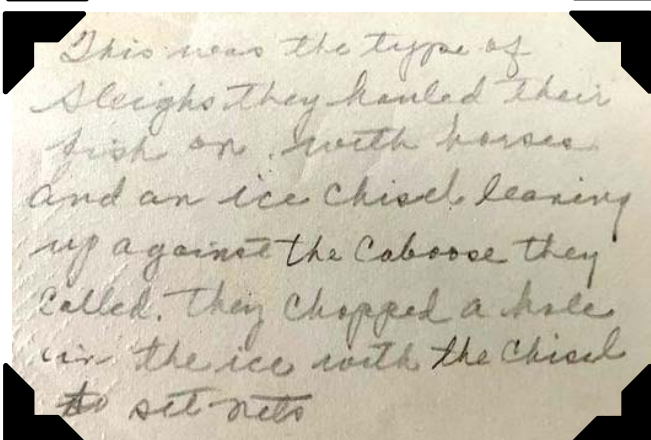 This was the type of
sleighs they hauled their
fish on. with horses
and an ice chisel leaning
up against the caboose they
called. They chopped a hole
in the ice with the chisel
to set nets